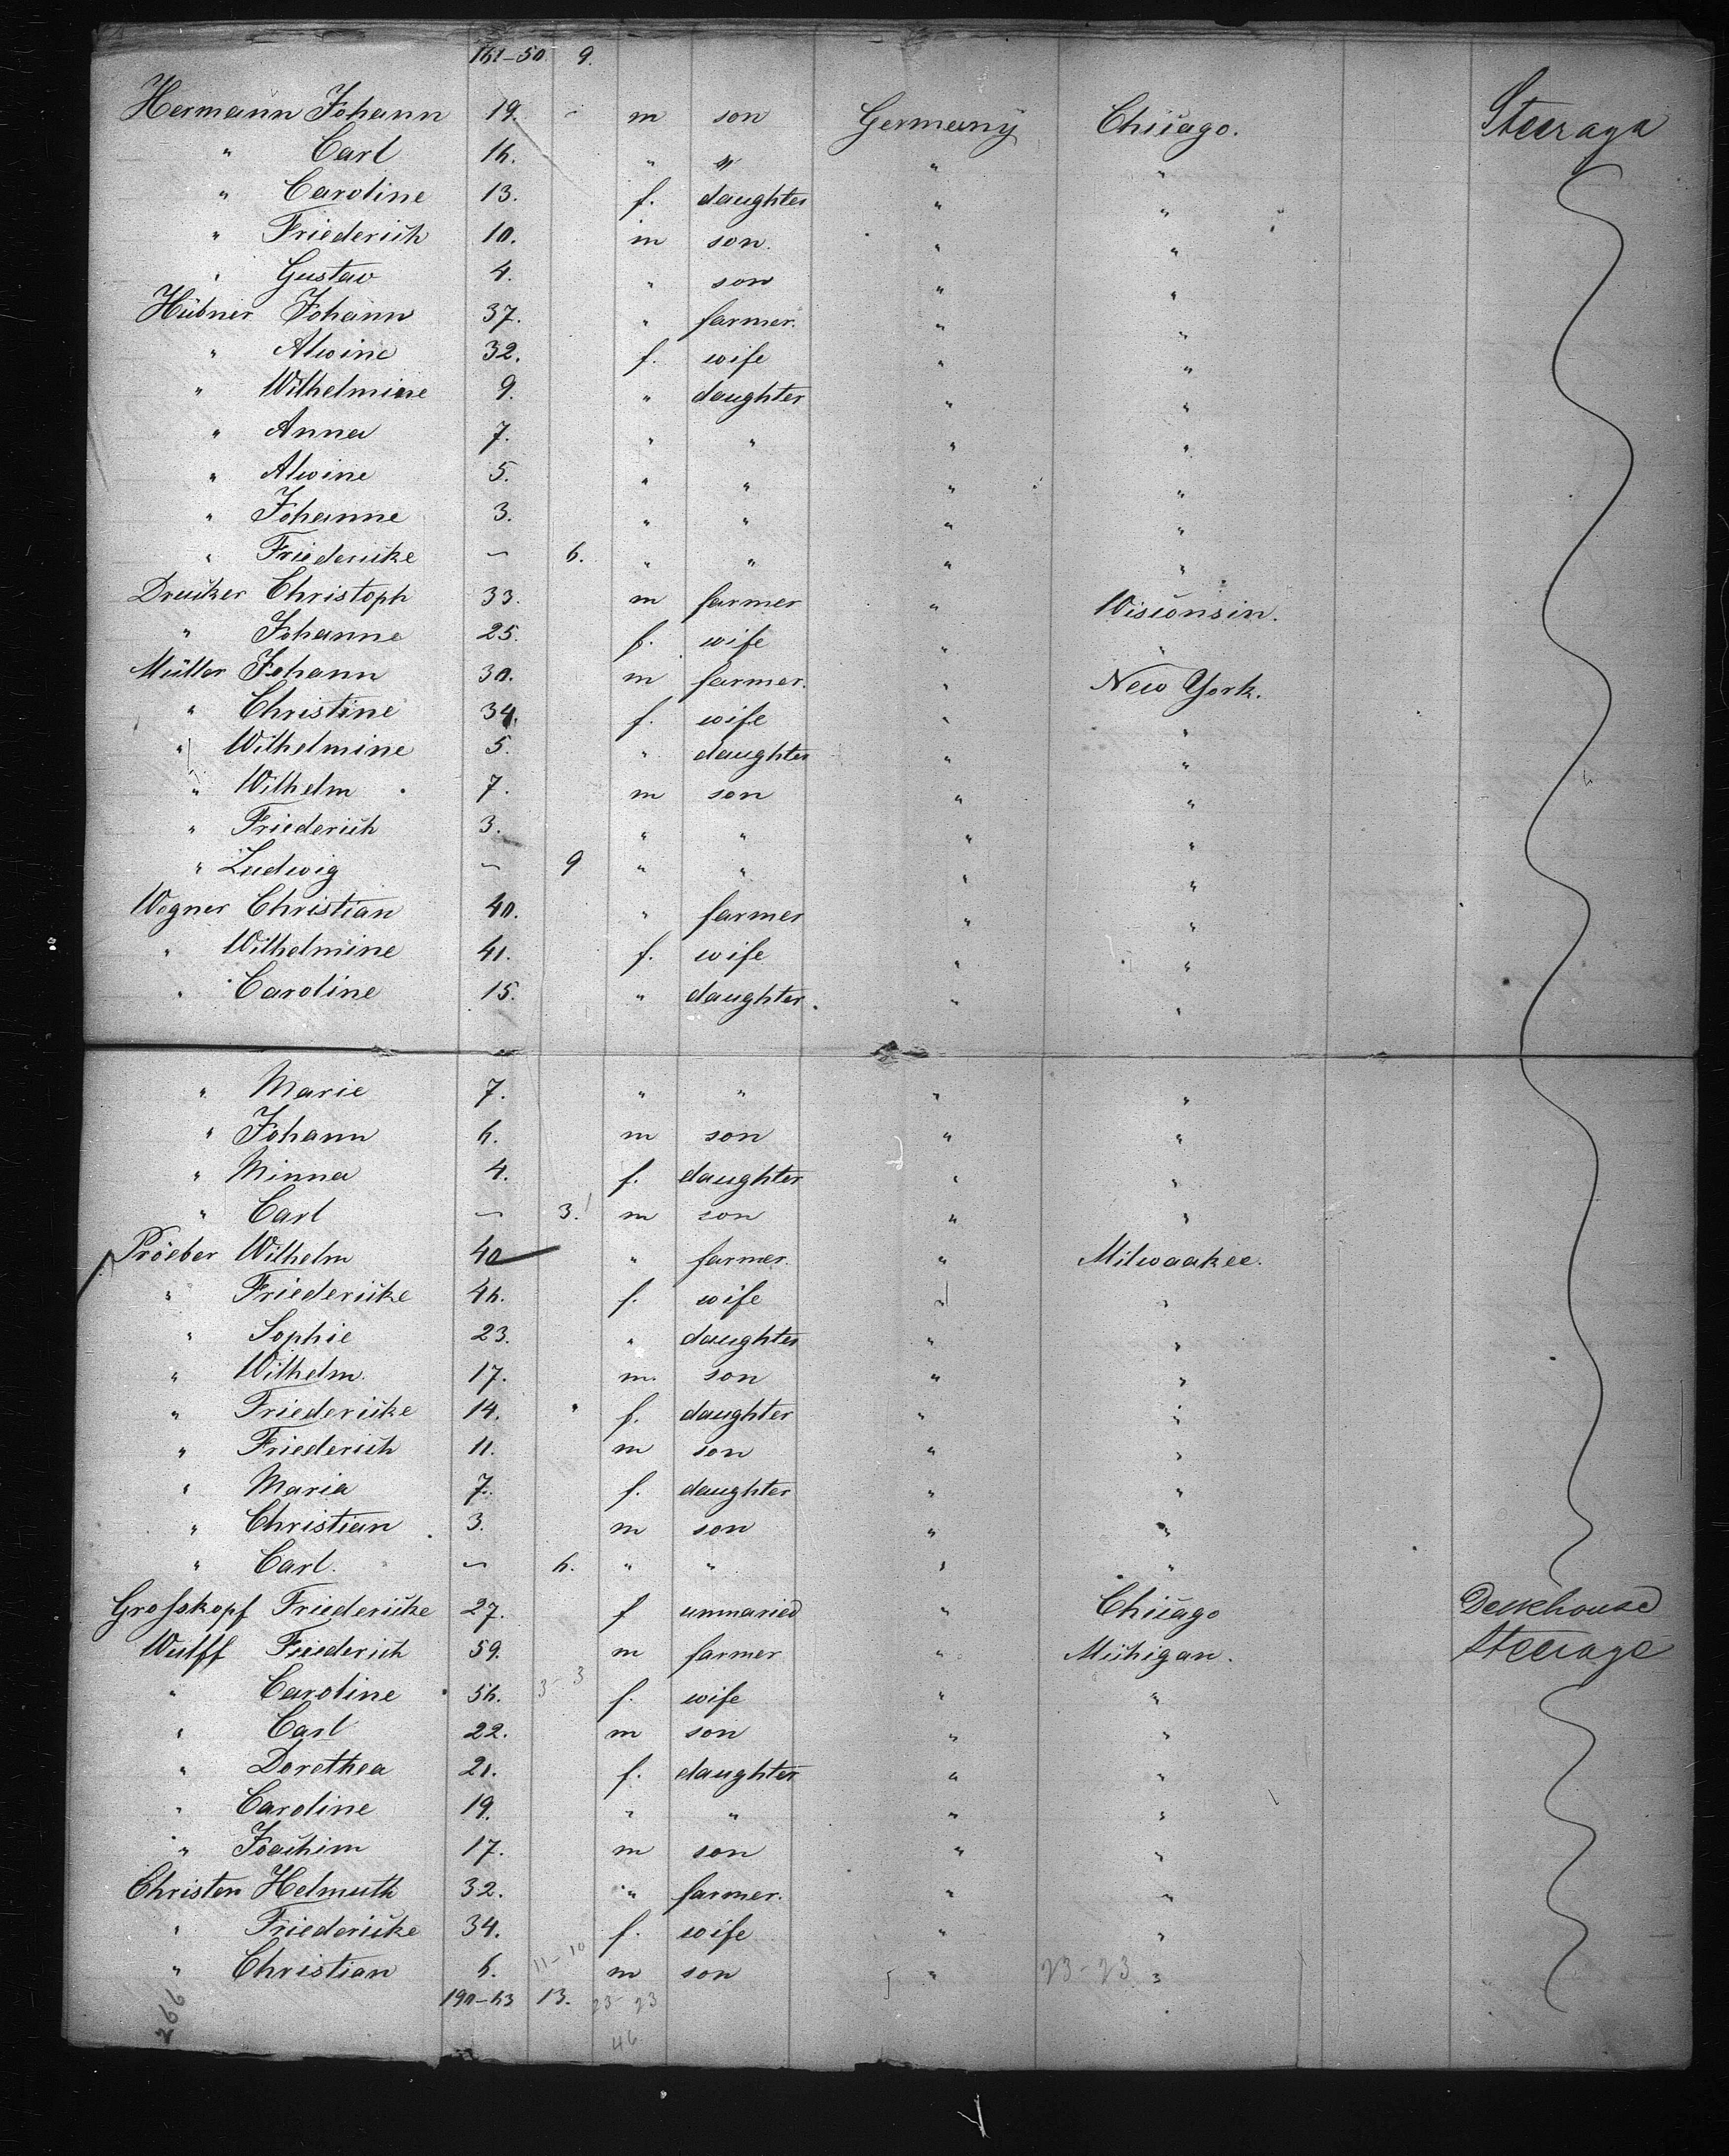 161-50. 9.
Hermann Johann 19. - m son Germany Chicago. Steerage
" Carl 16. " " " "
" Caroline 13. f. daughter " "
" Friederich 10. m son. " "
" Gustav 4. " son " "
Hübner Johann 37. " farmer. " "
" Alwine 32. f. wife " "
" Wilhelmine 9. " daughter " "
" Anna 7. " " " "
" Alwine 5. " " " "
" Johanne 3. " " " "
" Friedericke — 6. " " " "
Drucker Christoph 33. m farmer " Wisconsin.
" Johanne 25. f. wife " "
Müller Johann 30. m farmer. " New York.
" Christine 34. f. wife " "
" Wilhelmine 5. " daughter " "
" Wilhelm 7. m son " "
" Friederich 3. " " " "
" Ludwig — 9 " " " "
Wegner Christian 40. " farmer " "
" Wilhelmine 41. f. wife " "
" Caroline 15. " daughter. " "
" Marie 7. " " " "
" Johann 6. m son " "
" Minna 4. f. daughter " "
" Carl — 3. m son " "
Pröeber Wilhelm 40 " farmer. " Milwaakee.
" Friedericke 46. f. wife " "
" Sophie 23. " daughter " "
" Wilhelm. 17. m. son " "
" Friedericke 14. " f. daughter " "
" Friederich 11. m son " "
" Maria 7. f. daughter " "
" Christian 3. m son " "
" Carl. — 6. " " " "
Grosskopf Friedericke 27. f unmaried " Chicago Deckhouse
Wulff Friederich 59. m farmer " Michigan. Steerage
" Caroline 56. 3-3 f. wife " "
" Carl 22. m son " "
" Dorethea 21. f. daughter " "
" Caroline 19. " " " "
" Joachim 17. m son " "
Christen Helmuth 32. " farmer. " "
" Friedericke 34. f. wife " "
" Christian 6. 11-10 m son " 23-23 "
190-63 13. 23-23
46
266